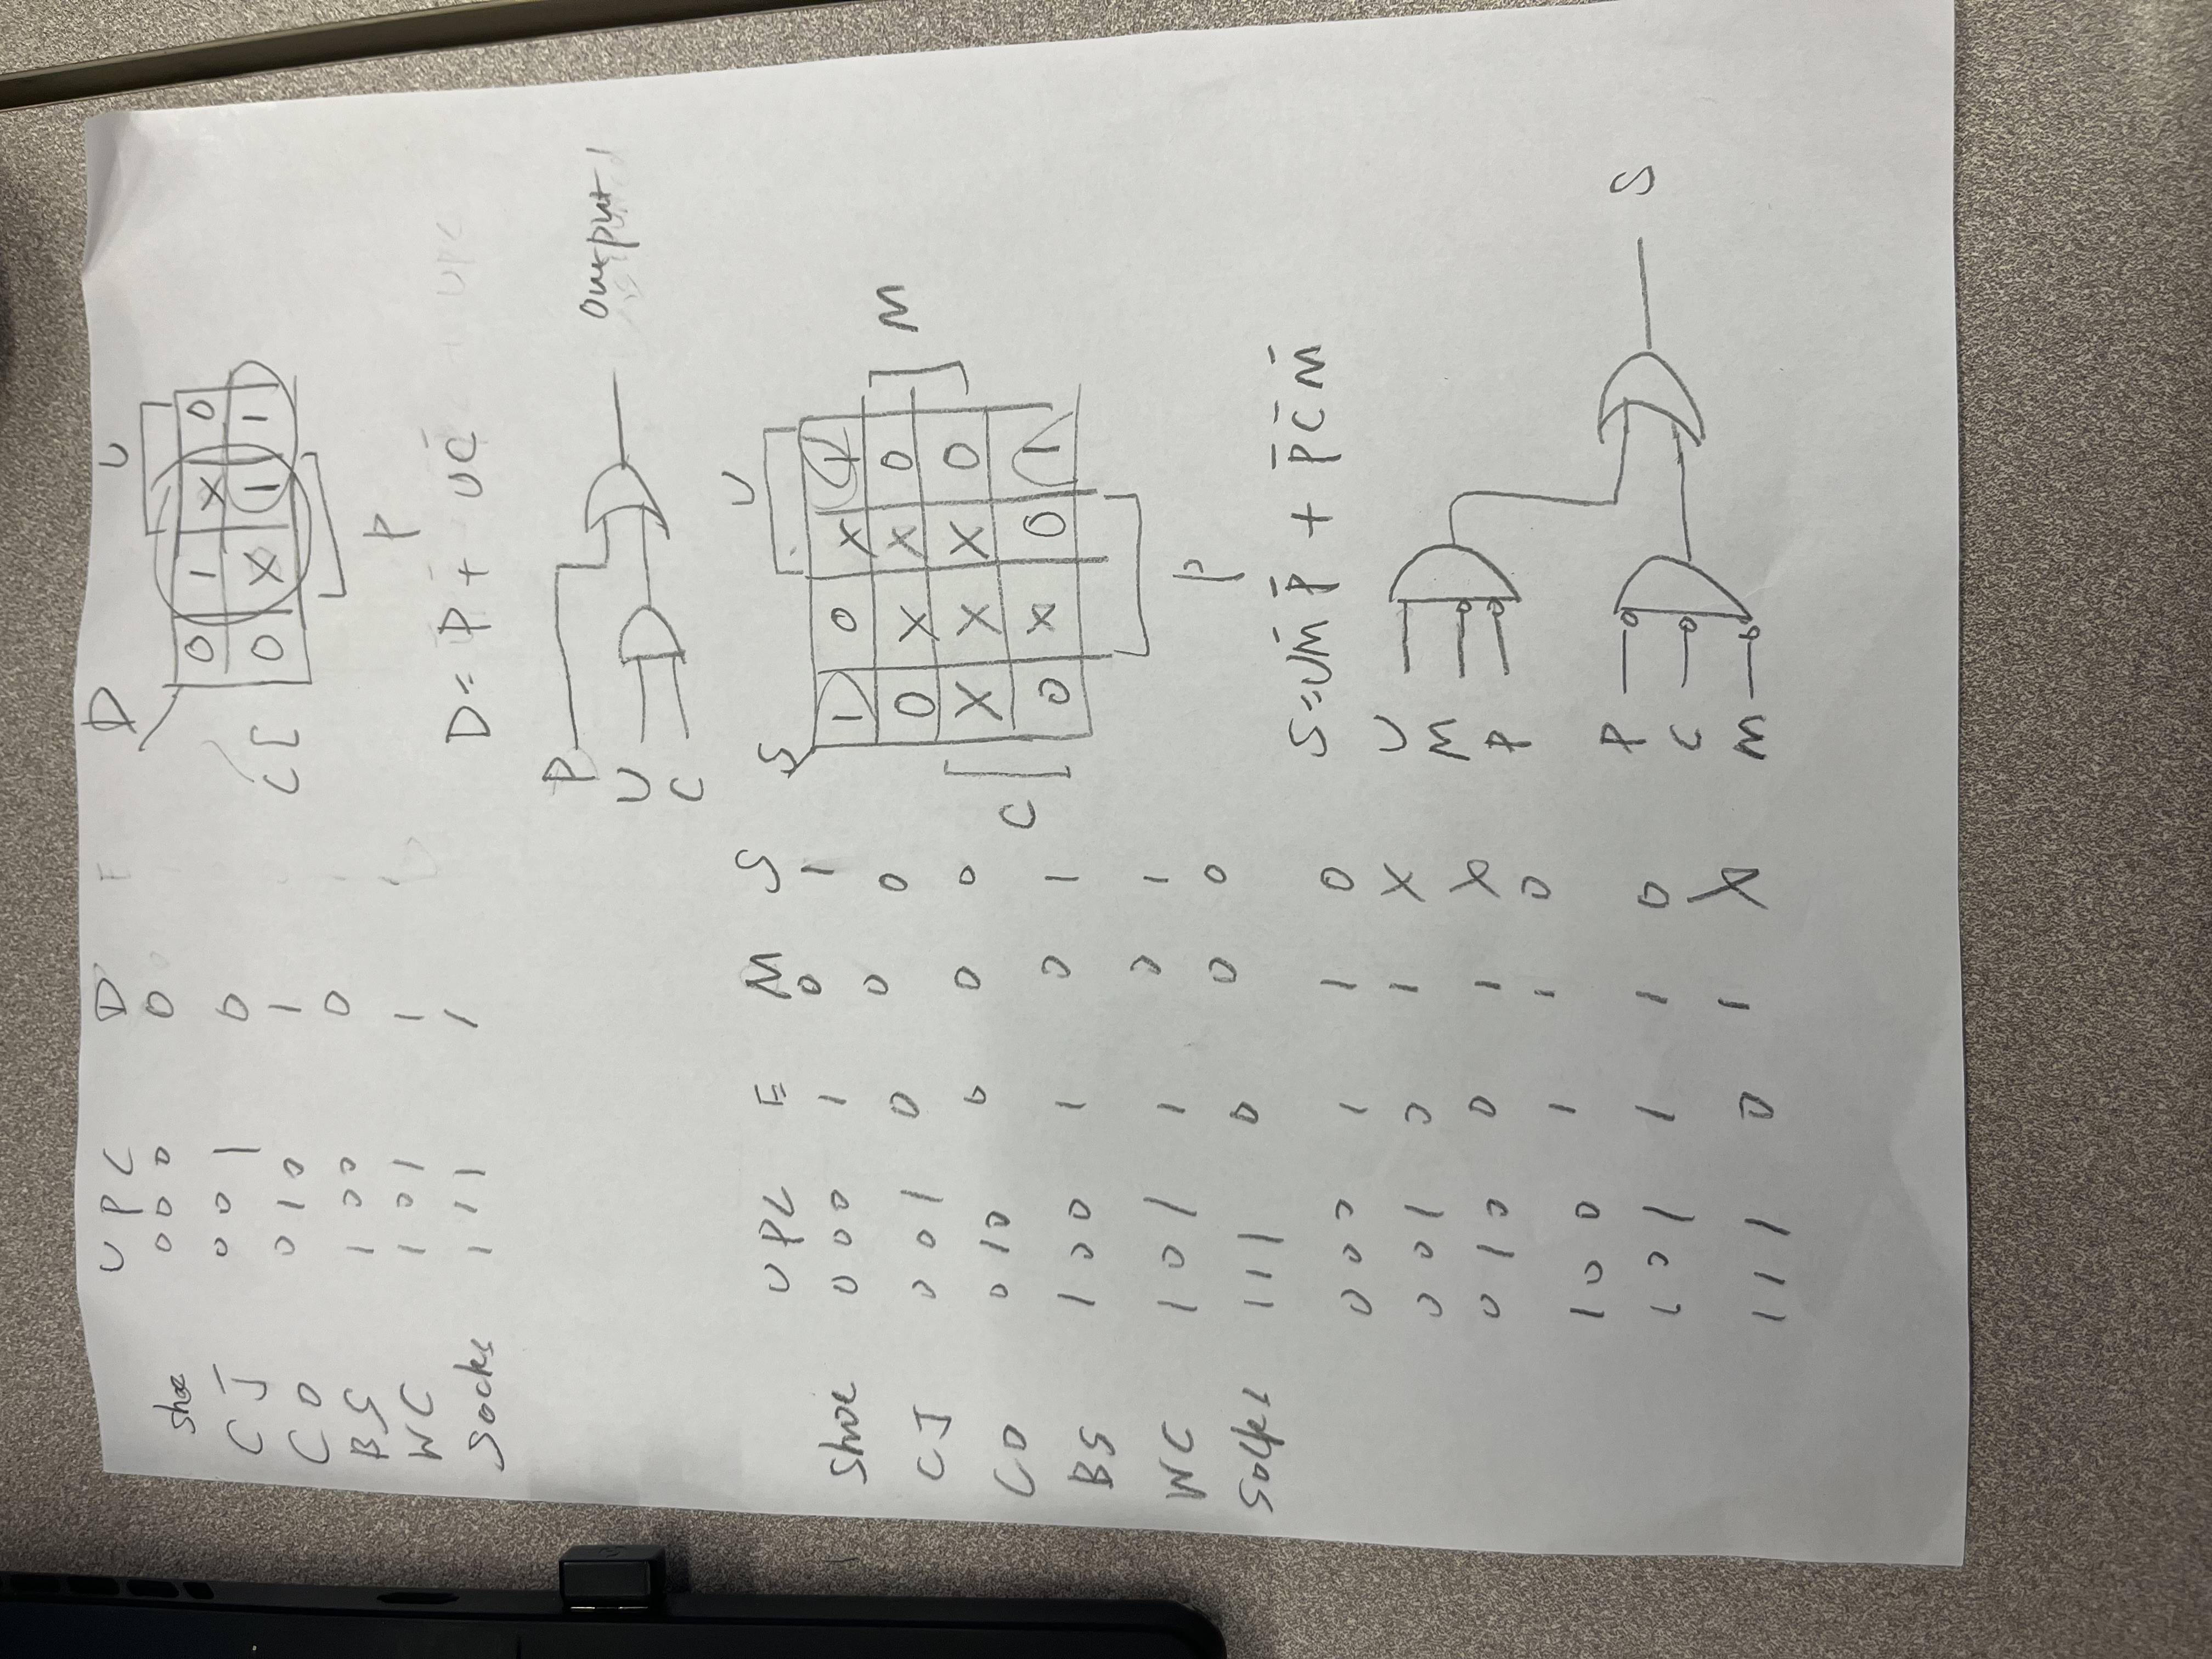 U P C D
Shoe 0 0 0 0
C J 0 0 1 0
C O 0 1 0 1
B S 1 0 0 0
W C 1 0 1 1
Socks 1 1 1 1
D U
0 1 X 0
C 0 X 1 1
P
D = P + UC
P
U
C
Output 1
U P C E M S
Shoe 0 0 0 1 0 1
C J 0 0 1 0 0 0
C O 0 1 0 0 0 0
B S 1 0 0 1 0 1
W C 1 0 1 1 0 1
Socks 1 1 1 0 0 0
0 0 0 1 1 0
0 0 1 0 1 X
0 1 0 0 1 X
1 0 0 1 1 0
1 0 1 1 1 0
1 1 1 0 1 X
S U
1 0 X 1
0 X X 0 M
X X X 0
C 0 X 0 1
P
S = UM̄P̄ + P̄C̄M̄
U
M
P
P
C
M
S